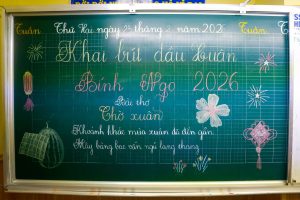 Tuần Thứ Hai ngày 23 tháng 2 năm 202 Tuần
Khai bút đầu Xuân
Bính Ngọ 2026
Bài thơ
Chờ xuân
Khoảnh khắc mùa xuân đã đến gần
Mây bồng bạc vẫn ngủ lang thang